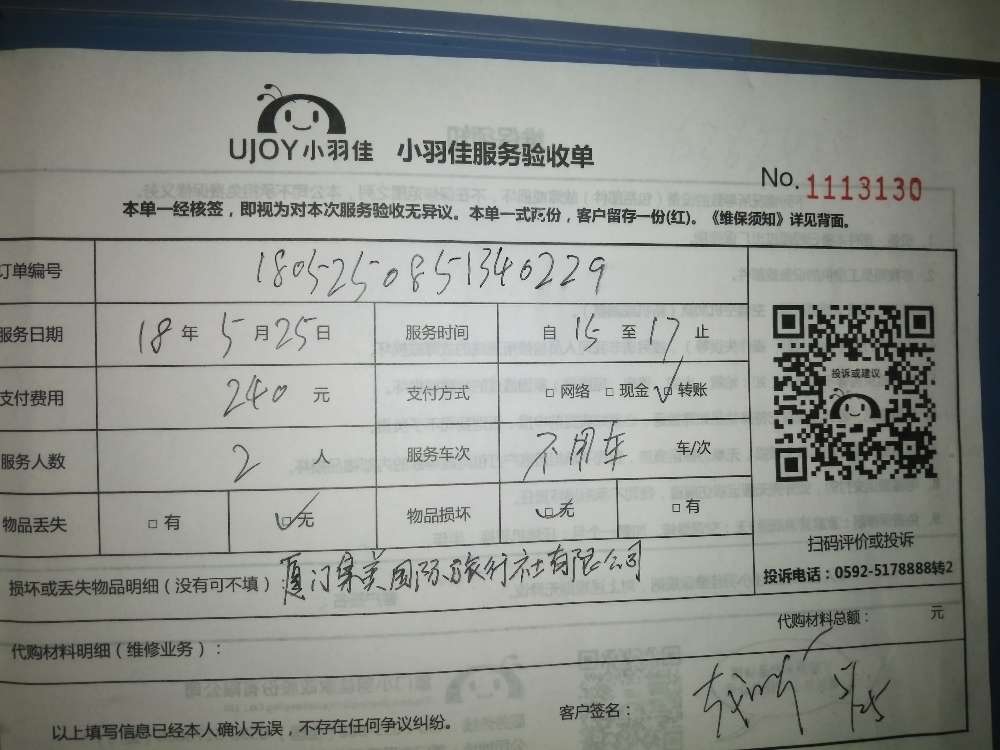 UJOY小羽佳 小羽佳服务验收单
No. 1113130
本单一经核签，即视为对本次服务验收无异议。本单一式两份，客户留存一份(红)。《维保须知》详见背面。
订单编号 1805250851340229
服务日期 18年5月25日 服务时间 自15至17止
支付费用 240元 支付方式 □网络 □现金 ☑转账
投诉或建议
服务人数 2人 服务车次 不用车 车/次
物品丢失 □有 ☑无 物品损坏 ☑无 □有
扫码评价或投诉
损坏或丢失物品明细（没有可不填）：厦门集美国际旅行社有限公司
投诉电话：0592-5178888转2
代购材料明细（维修业务）： 代购材料总额： 元
以上填写信息已经本人确认无误，不存在任何争议纠纷。 客户签名： 5/25